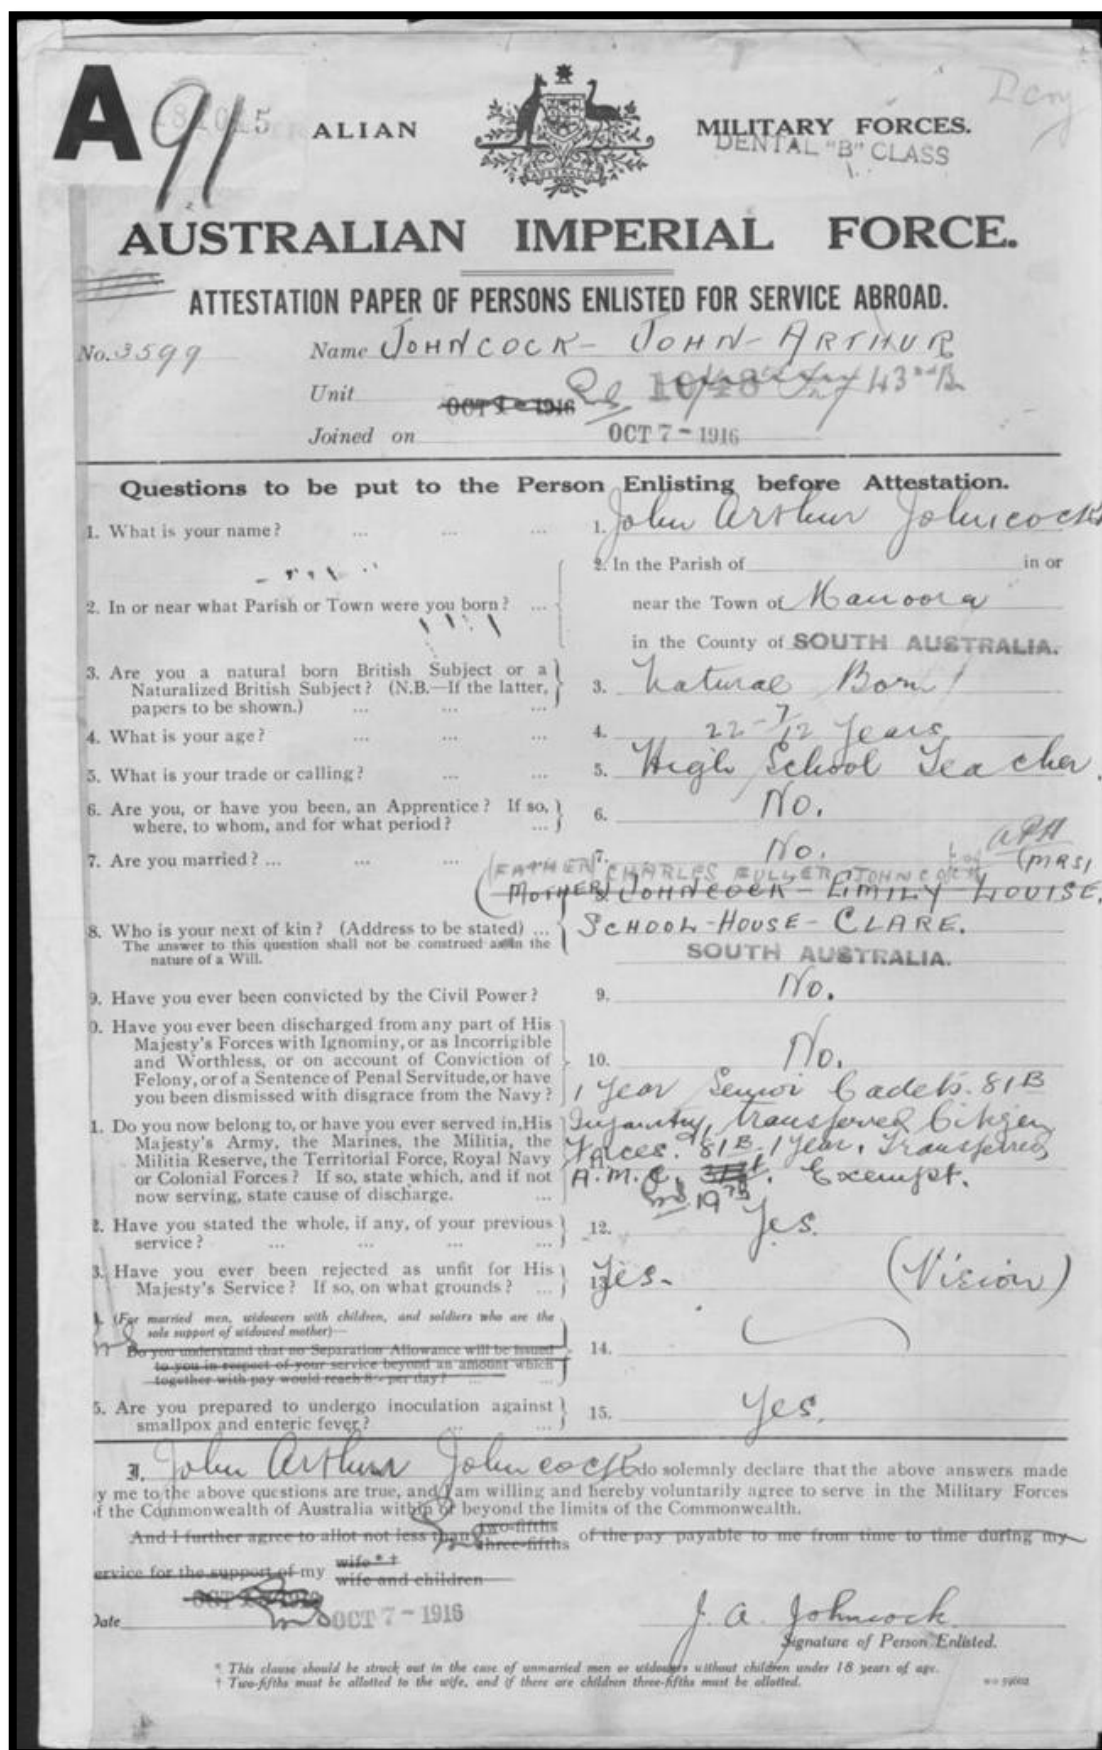 A
91
ALIAN
MILITARY FORCES.
DENTAL "B" CLASS
AUSTRALIA
AUSTRALIAN IMPERIAL FORCE.
ATTESTATION PAPER OF PERSONS ENLISTED FOR SERVICE ABROAD.
No. 3599 Name JOHNCOCK - JOHN - ARTHUR
Unit 43rd
Joined on OCT 7 - 1916
Questions to be put to the Person Enlisting before Attestation.
1. What is your name? ... ... ... 1. John Arthur Johncock
2. In the Parish of in or
2. In or near what Parish or Town were you born? ... near the Town of Manoora
in the County of SOUTH AUSTRALIA.
3. Are you a natural born British Subject or a
Naturalized British Subject? (N.B.—If the latter, 3. Natural Born
papers to be shown.) ... ... ...
4. What is your age? ... ... ... 4. 22 - 7/12 years
5. What is your trade or calling? ... ... 5. High School Teacher.
6. Are you, or have you been, an Apprentice? If so,
where, to whom, and for what period? ... 6. No.
7. Are you married? ... ... ... 7. No.
(FATHER) CHARLES FULLER JOHNCOCK
(MRS)
(MOTHER) JOHNCOCK - EMILY LOUISE.
8. Who is your next of kin? (Address to be stated) ... SCHOOL-HOUSE - CLARE.
The answer to this question shall not be construed as in the
nature of a Will. SOUTH AUSTRALIA.
9. Have you ever been convicted by the Civil Power? 9. No.
0. Have you ever been discharged from any part of His
Majesty's Forces with Ignominy, or as Incorrigible
and Worthless, or on account of Conviction of 10. No.
Felony, or of a Sentence of Penal Servitude, or have
you been dismissed with disgrace from the Navy? 1 year Senior Cadets. 81B
1. Do you now belong to, or have you ever served in, His Infantry, transferred Citizen
Majesty's Army, the Marines, the Militia, the
Militia Reserve, the Territorial Force, Royal Navy Forces. 81B. 1 year. Transferred
or Colonial Forces? If so, state which, and if not A.M.C. Exempt.
now serving, state cause of discharge. ... 19
2. Have you stated the whole, if any, of your previous
service? ... ... ... ... 12. Yes.
3. Have you ever been rejected as unfit for His
Majesty's Service? If so, on what grounds? ... 13. Yes. (Vision)
(For married men, widowers with children, and soldiers who are the
sole support of widowed mother)—
Do you understand that no Separation Allowance will be issued 14.
to you in respect of your service beyond an amount which
together with pay would reach 8/- per day? ...
5. Are you prepared to undergo inoculation against
smallpox and enteric fever? ... ... 15. Yes.
I, John Arthur Johncock do solemnly declare that the above answers made
y me to the above questions are true, and I am willing and hereby voluntarily agree to serve in the Military Forces
of the Commonwealth of Australia within or beyond the limits of the Commonwealth.
And I further agree to allot not less than two-fifths three-fifths of the pay payable to me from time to time during my
ervice for the support of my wife*† wife and children
Date OCT 7 - 1916
J. A. Johncock
Signature of Person Enlisted.
* This clause should be struck out in the case of unmarried men or widowers without children under 18 years of age.
† Two-fifths must be allotted to the wife, and if there are children three-fifths must be allotted.